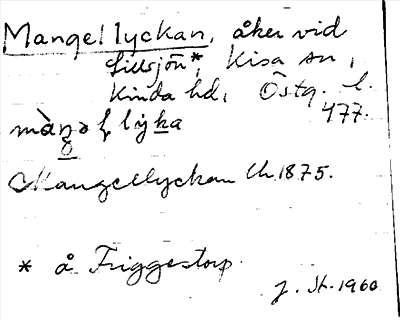 Mangellyckan, åker vid
Lillsjön*, Kisa sn,
Kinda hd, Östg. l.
477.
màŋəḷlỳka
Mangellyckan Uk 1875.
* å Friggestorp.
J. St. 1960